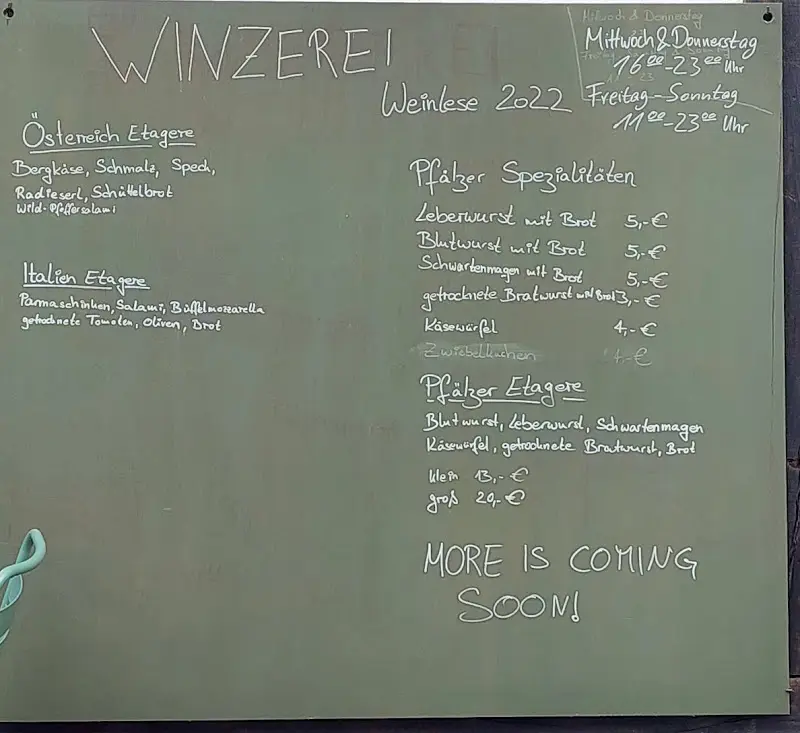 WINZEREI
Weinlese 2022
Mittwoch & Donnerstag
Mittwoch & Donnerstag
16⁰⁰-23⁰⁰ Uhr
Freitag-Sonntag
11⁰⁰-23⁰⁰ Uhr
Österreich Etagere
Bergkäse, Schmalz, Speck,
Radieserl, Schüttelbrot
Wild-Pfeffersalami
Italien Etagere
Parmaschinken, Salami, Büffelmozzarella
getrocknete Tomaten, Oliven, Brot
Pfälzer Spezialitäten
Leberwurst mit Brot 5,-€
Blutwurst mit Brot 5,-€
Schwartenmagen mit Brot 5,-€
getrocknete Bratwurst mit Brot 3,-€
Käsewürfel 4,-€
Zwiebelkuchen 4,-€
Pfälzer Etagere
Blutwurst, Leberwurst, Schwartenmagen
Käsewürfel, getrocknete Bratwurst, Brot
klein 13,-€
groß 20,-€
MORE IS COMING
SOON!